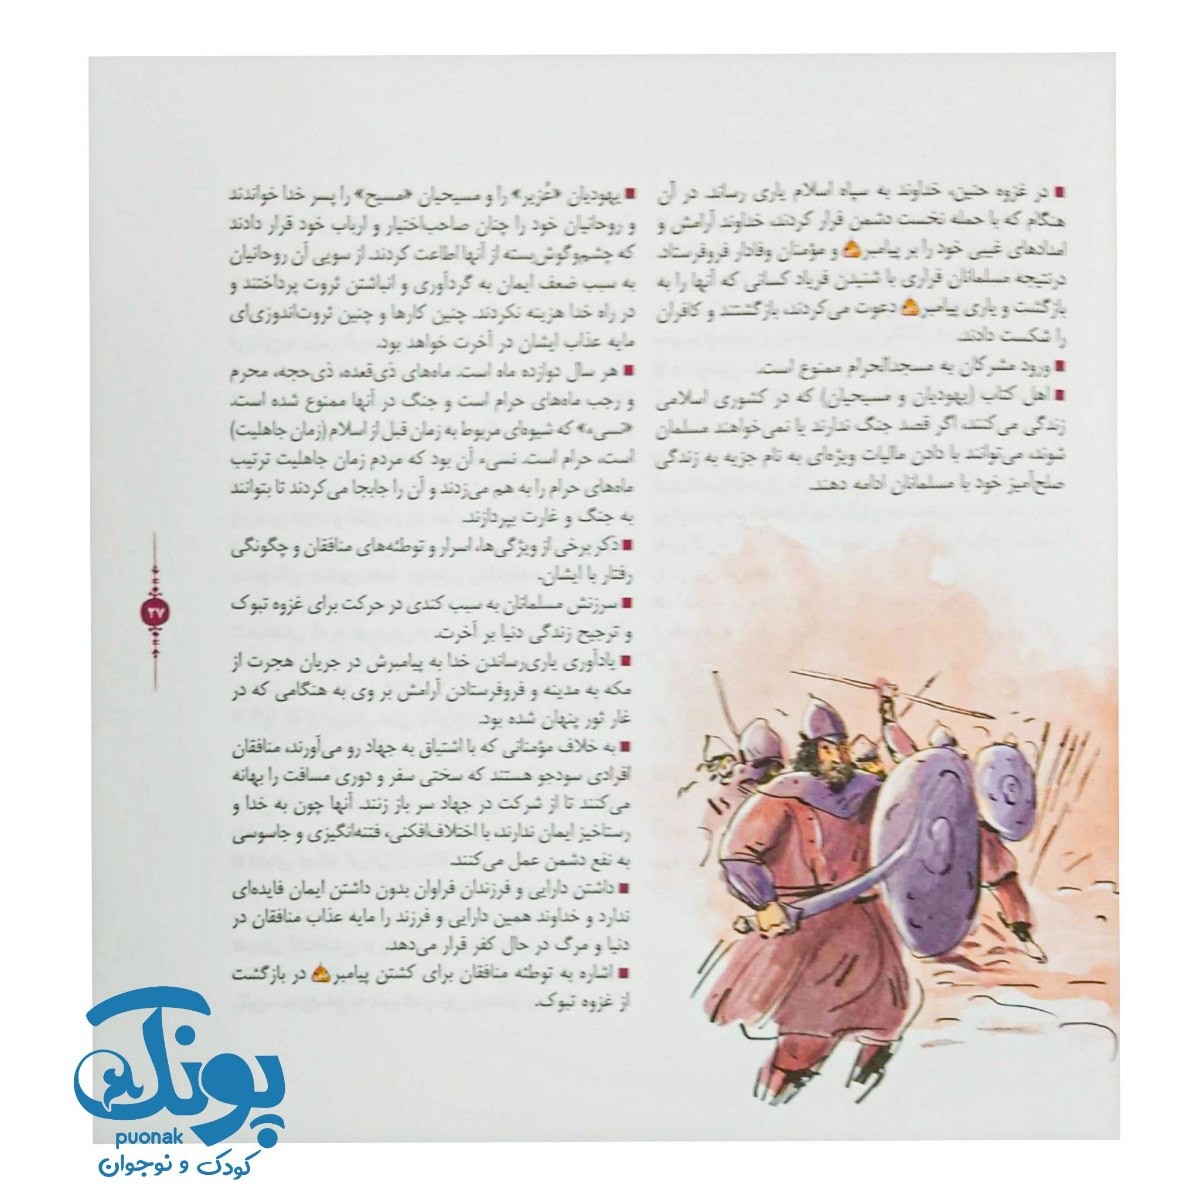 ■ در غزوه حنین، خداوند به سپاه اسلام یاری رساند. در آن
هنگام که با حمله نخست دشمن فرار کردند، خداوند آرامش و
امدادهای غیبی خود را بر پیامبر و مؤمنان وفادار فروفرستاد.
درنتیجه مسلمانان فراری با شنیدن فریاد کسانی که آنها را به
بازگشت و یاری پیامبر دعوت می‌کردند، بازگشتند و کافران
را شکست دادند.
■ ورود مشرکان به مسجدالحرام ممنوع است.
■ اهل کتاب (یهودیان و مسیحیان) که در کشوری اسلامی
زندگی می‌کنند، اگر قصد جنگ ندارند یا نمی‌خواهند مسلمان
شوند، می‌توانند با دادن مالیات ویژه‌ای به نام جزیه به زندگی
صلح‌آمیز خود با مسلمانان ادامه دهند.
■ یهودیان «عُزیر» را و مسیحیان «مسیح» را پسر خدا خواندند
و روحانیان خود را چنان صاحب‌اختیار و ارباب خود قرار دادند
که چشم‌وگوش‌بسته از آنها اطاعت کردند. از سویی آن روحانیان
به سبب ضعف ایمان به گردآوری و انباشتن ثروت پرداختند و
در راه خدا هزینه نکردند. چنین کارها و چنین ثروت‌اندوزی‌ای
مایه عذاب ایشان در آخرت خواهد بود.
■ هر سال دوازده ماه است. ماه‌های ذی‌قعده، ذی‌حجه، محرم
و رجب ماه‌های حرام است و جنگ در آنها ممنوع شده است.
«نسیء» که شیوه‌ای مربوط به زمان قبل از اسلام (زمان جاهلیت)
است، حرام است. نسیء آن بود که مردم زمان جاهلیت ترتیب
ماه‌های حرام را به هم می‌زدند و آن را جابجا می‌کردند تا بتوانند
به جنگ و غارت بپردازند.
■ ذکر برخی از ویژگی‌ها، اسرار و توطئه‌های منافقان و چگونگی
رفتار با ایشان.
■ سرزنش مسلمانان به سبب کندی در حرکت برای غزوه تبوک
و ترجیح زندگی دنیا بر آخرت.
■ یادآوری یاری‌رساندن خدا به پیامبرش در جریان هجرت از
مکه به مدینه و فروفرستادن آرامش بر وی به هنگامی که در
غار ثور پنهان شده بود.
■ به خلاف مؤمنانی که با اشتیاق به جهاد رو می‌آورند، منافقان
افرادی سودجو هستند که سختی سفر و دوری مسافت را بهانه
می‌کنند تا از شرکت در جهاد سر باز زنند. آنها چون به خدا و
رستاخیز ایمان ندارند، با اختلاف‌افکنی، فتنه‌انگیزی و جاسوسی
به نفع دشمن عمل می‌کنند.
■ داشتن دارایی و فرزندان فراوان بدون داشتن ایمان فایده‌ای
ندارد و خداوند همین دارایی و فرزند را مایه عذاب منافقان در
دنیا و مرگ در حال کفر قرار می‌دهد.
■ اشاره به توطئه منافقان برای کشتن پیامبر در بازگشت
از غزوه تبوک.
۲۷
پونک
puonak
کودک و نوجوان